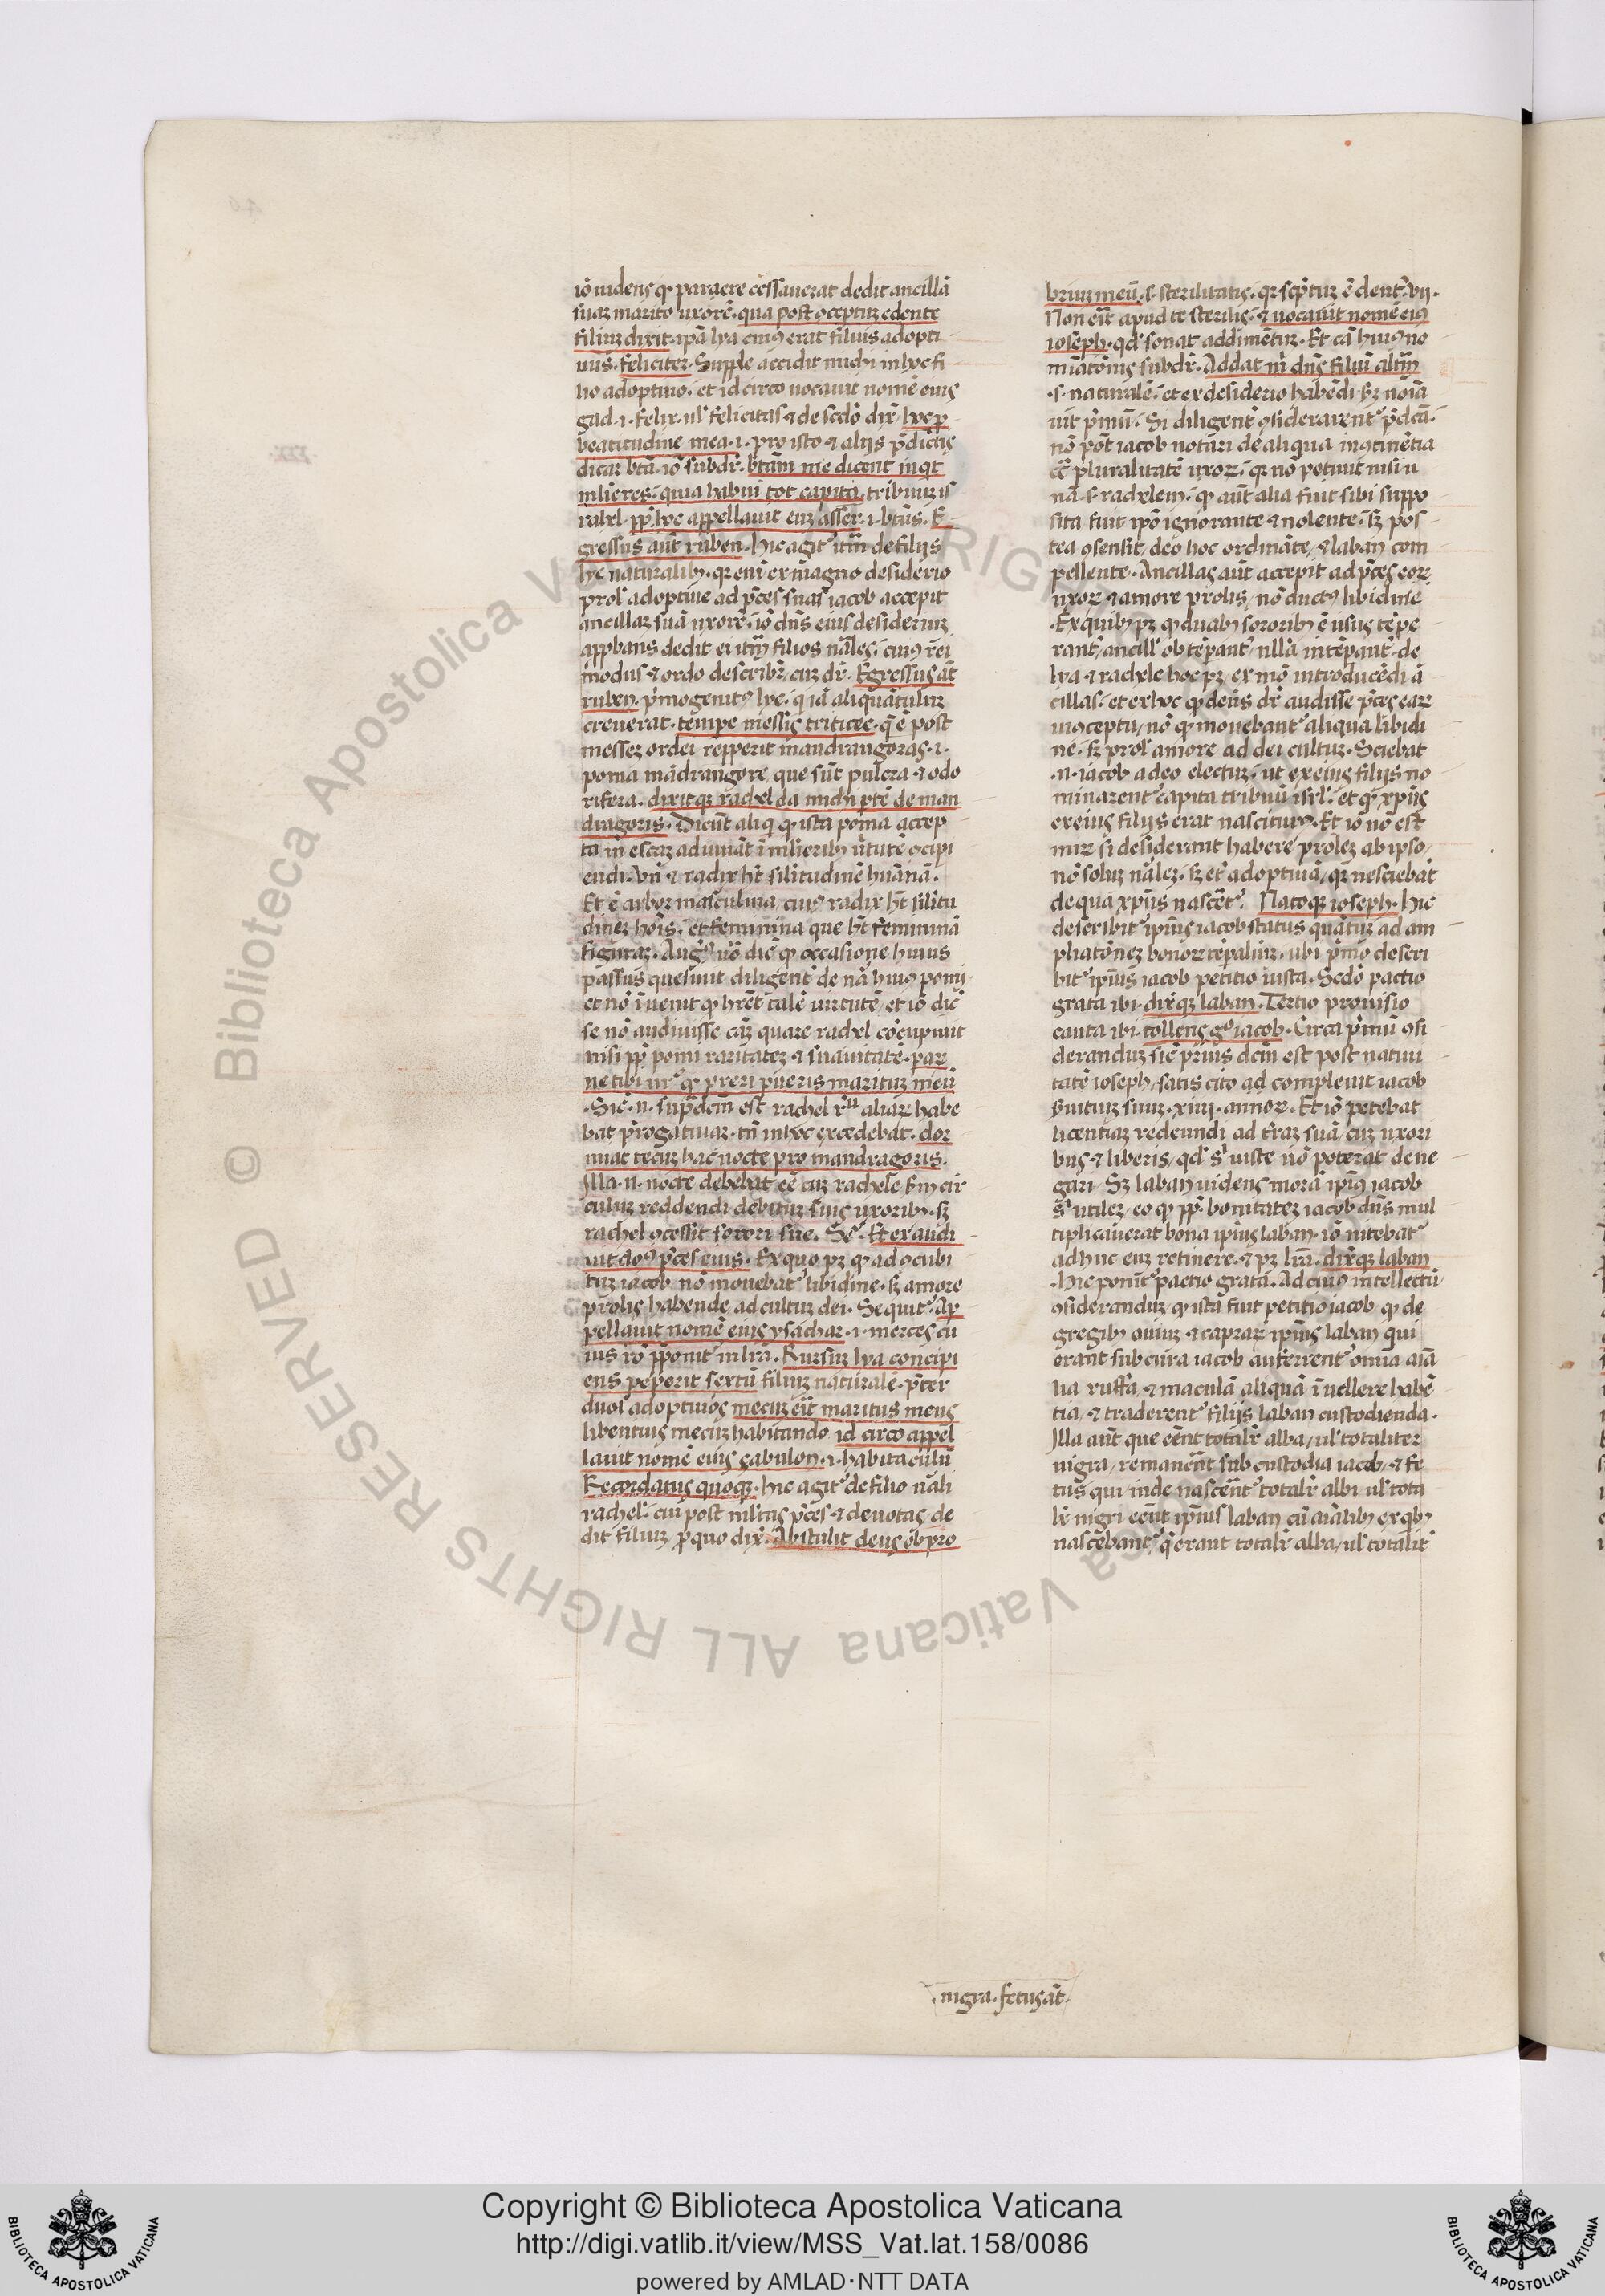 iō uidens ꝙ parere cessauerat dedit ancillā
suaꝫ marito uxorē. qua post ꝯceptuꝫ edente
filiuꝫ dixit. ipā lya cuiꝰ erat filius adopti
uus. feliciter. Supple accidit michi in hoc fi
lio adoptiuo. et id circo uocauit nomē eius
gad .i. felix. ul' felicitas & de scdō dix̄. hoc ꝓ
beatitudine mea .i. pro isto & alijs p̄dictis
dicar btā. iō subdr̄. btām me dicent inqt
mlieres. quia habui tot capita. tribuuꝫ is
rahel. ꝓp̄ hoc appellauit euꝫ asser .i. btūs. E
gressus aūt ruben. hic agit' itm̄ de filijs
lye naturalibꝫ. qr enī ex magno desiderio
prol' adoptiue ad p̄ces suas iacob accepit
ancillaꝫ suā uxorē. iō dn̄s eius desideriuꝫ
apꝓbans dedit ei itm̄ filios nāles. cuiꝰ rei
modus & ordo describr̄. cuꝫ dr̄. Egressus āt
ruben. p̄mogenitꝰ lye. q iā aliquātuluꝫ
creuerat. tempe messis triticee. q ē post
messeꝫ ordei repperit mandrangoras .i.
poma mādrangore que sūt pulcra & odo
rifera. dixitqꝫ rachel da michi ptē de man
dragoris. Dicūt aliq ꝙ ista poma accep
ta in escaꝫ adiuuāt ī mlieribꝫ uirtutē ꝯcipi
endi. Vn̄ & radix ht̄ silitudinē huānā.
Et ē arbor masculina cuiꝰ radix ht̄ silitu
dineꝫ hōis. et feminina que ht̄ femininā
figuraꝫ. Augꝰ uō dic̄ ꝙ occasione huius
passus quesiuit diligent' de nā huiꝰ pomi
et nō īuenit ꝙ hrēt talē uirtutē. et iō dic̄
se nō audiuisse cāꝫ quare rachel cōcupiuit
nisi ꝓp̄ pomi raritateꝫ & suauitatē. par
ne tibi ur̄ ꝙ preri pueris marituꝫ meū
Sic .n. sup̄ dcm̄ est rachel alias habe
bat p̄rogatiuaꝫ. tn̄ in hoc excedebat. dor
miat tecuꝫ hac nocte pro mandragoris.
Illa .n. nocte debebat eē cuꝫ rachele scm̄ cir
culuꝫ reddendi debituꝫ suis uxoribꝫ. sꝫ
rachel ꝯcessit sorori sue. Seq̄. Et exaudi
uit dꝰ p̄ces eius. Ex quo pꝫ ꝙ ad ꝯcubi
tuꝫ iacob nō mouebat' libidine. sꝫ amore
prolis habende ad cultuꝫ dei. Sequit'. Ap
pellauit nomē eius ysachar .i. merces cu
ius rō p̄ponit' in lrā. Rursuꝫ lya concipi
ens peperit sextū filiuꝫ naturalē. p̄ter
duos adoptiuos mecuꝫ eīt maritus meus
libentius mecuꝫ habitando. id circo appel
lauit nomē eius çabulon .i. habitaculū
Recordatus quoqꝫ. hic agit' de filio nāli
rachel. cui post mltas p̄ces & deuotas de
dit filiuꝫ p̄ quo dix̄. Abstulit deus obpro
briuꝫ meū .s. sterilitatis. qr scp̄tuꝫ ē deut' vij.
Non eīt apud te sterilis. & uocauit nomē eiꝰ
ioseph. qd' sonat addimētuꝫ. Et cā huiꝰ no
mīatōnis subdr̄. Addat m̄ dn̄s filiū altm̄
.s. naturalē. et ex desiderio habēdi sꝫ noīa
uit p̄mū. Si diligent' ꝯsiderarent' p̄dcā.
nō pōt iacob notari de aliqua inꝯtinētia
cē pluralitatē uxoꝝ. qr nō petiuit nisi u
nā .s. rachelem. ꝙ aūt alia fuit sibi suppo
sita fuit ipō ignorante & nolente. sꝫ pos
tea ꝯsensit, deo hoc ordināte, & laban com
pellente. Ancillas aūt accepit ad p̄ces eoꝝ
uxoꝝ & amore prolis, nō ductꝰ libidine
Ex quibꝫ pꝫ ꝙ duabꝫ sororibꝫ ē usus tēpe
rant', ancill' obtēperant', nllā intēpant'. de
lya & rachele hoc pꝫ ex mō introducēdi ā
cillas. et ex hoc ꝙ deus dr̄ audisse p̄ces eaꝝ
in ꝯceptu, nō ꝙ mouebant' aliqua libidi
ne. sꝫ prol' amore ad dei cultuꝫ. Sciebat
.n. iacob a deo electuꝫ. ut ex eius filijs no
minarent' capita tribuū isrl'. et ꝙ xp̄us
ex eius filijs erat nasciturꝰ. Et iō nō est
miꝝ si desiderant habere proleꝫ ab ipso,
nō soluꝫ nāleꝫ. sꝫ et adoptiuā, qr nesciebāt
de qua xp̄us nascēt'. Natoqꝫ ioseph. hic
describit' ipīus iacob status quātuꝫ ad am
pliatōneꝫ bonoꝝ tēpaliuꝫ. ubi p̄mo descri
bit' ipīus iacob petitio iusta. Scdō pactio
grata ibi. dix̄qꝫ laban. Tertio prouisio
cauta ibi. tollens gº iacob. Circa p̄mū ꝯsi
deranduꝫ sic prius dcm̄ est post natiui
tatē ioseph, satis cito ad compleuit iacob
suituꝫ suuꝫ .xiiij. annoꝝ. Et iō petebat
licentiaꝫ redeundi ad trāꝫ suā, cuꝫ uxori
bus & liberis, qd' s' iuste nō poterat dene
gari. Sꝫ laban uidens morā ipīꝰ iacob
s' utileꝫ, eo ꝙ ꝓp̄ bonitateꝫ iacob dn̄s mul
tiplicauerat bona ipīus laban. iō nitebat'
adhuc euꝫ retinere. & pꝫ lrā. dix̄qꝫ laban
Hic ponit' pactio grata. Ad cuiꝰ intellectū
ꝯsideranduꝫ ꝙ ista fuit petitio iacob ꝙ de
gregibꝫ ouiuꝫ & capraꝝ ipīus laban qui
erant sub cura iacob auferrent' omīa aīa
lia ruffa, & maculā aliquā ī uellere habē
tia, & traderent' filijs laban custodienda.
Illa aūt que eēnt totalr̄ alba, ul' totaliter
nigra, remanēnt sub custodia iacob, & fe
tus qui inde nascēnt' totalr̄ albi ul' tota
lr̄ nigri eēnt ipīus laban cū aīalibꝫ ex qbꝫ
nascēbant' q̄ erant totalr̄ alba, ul' totalit'
.nigra. fetus āt.
Copyright © Biblioteca Apostolica Vaticana
http://digi.vatlib.it/view/MSS_Vat.lat.158/0086
powered by AMLAD·NTT DATA
BIBLIOTECA APOSTOLICA VATICANA
BIBLIOTECA APOSTOLICA VATICANA
© Biblioteca Apostolica Vaticana ALL RIGHTS RESERVED